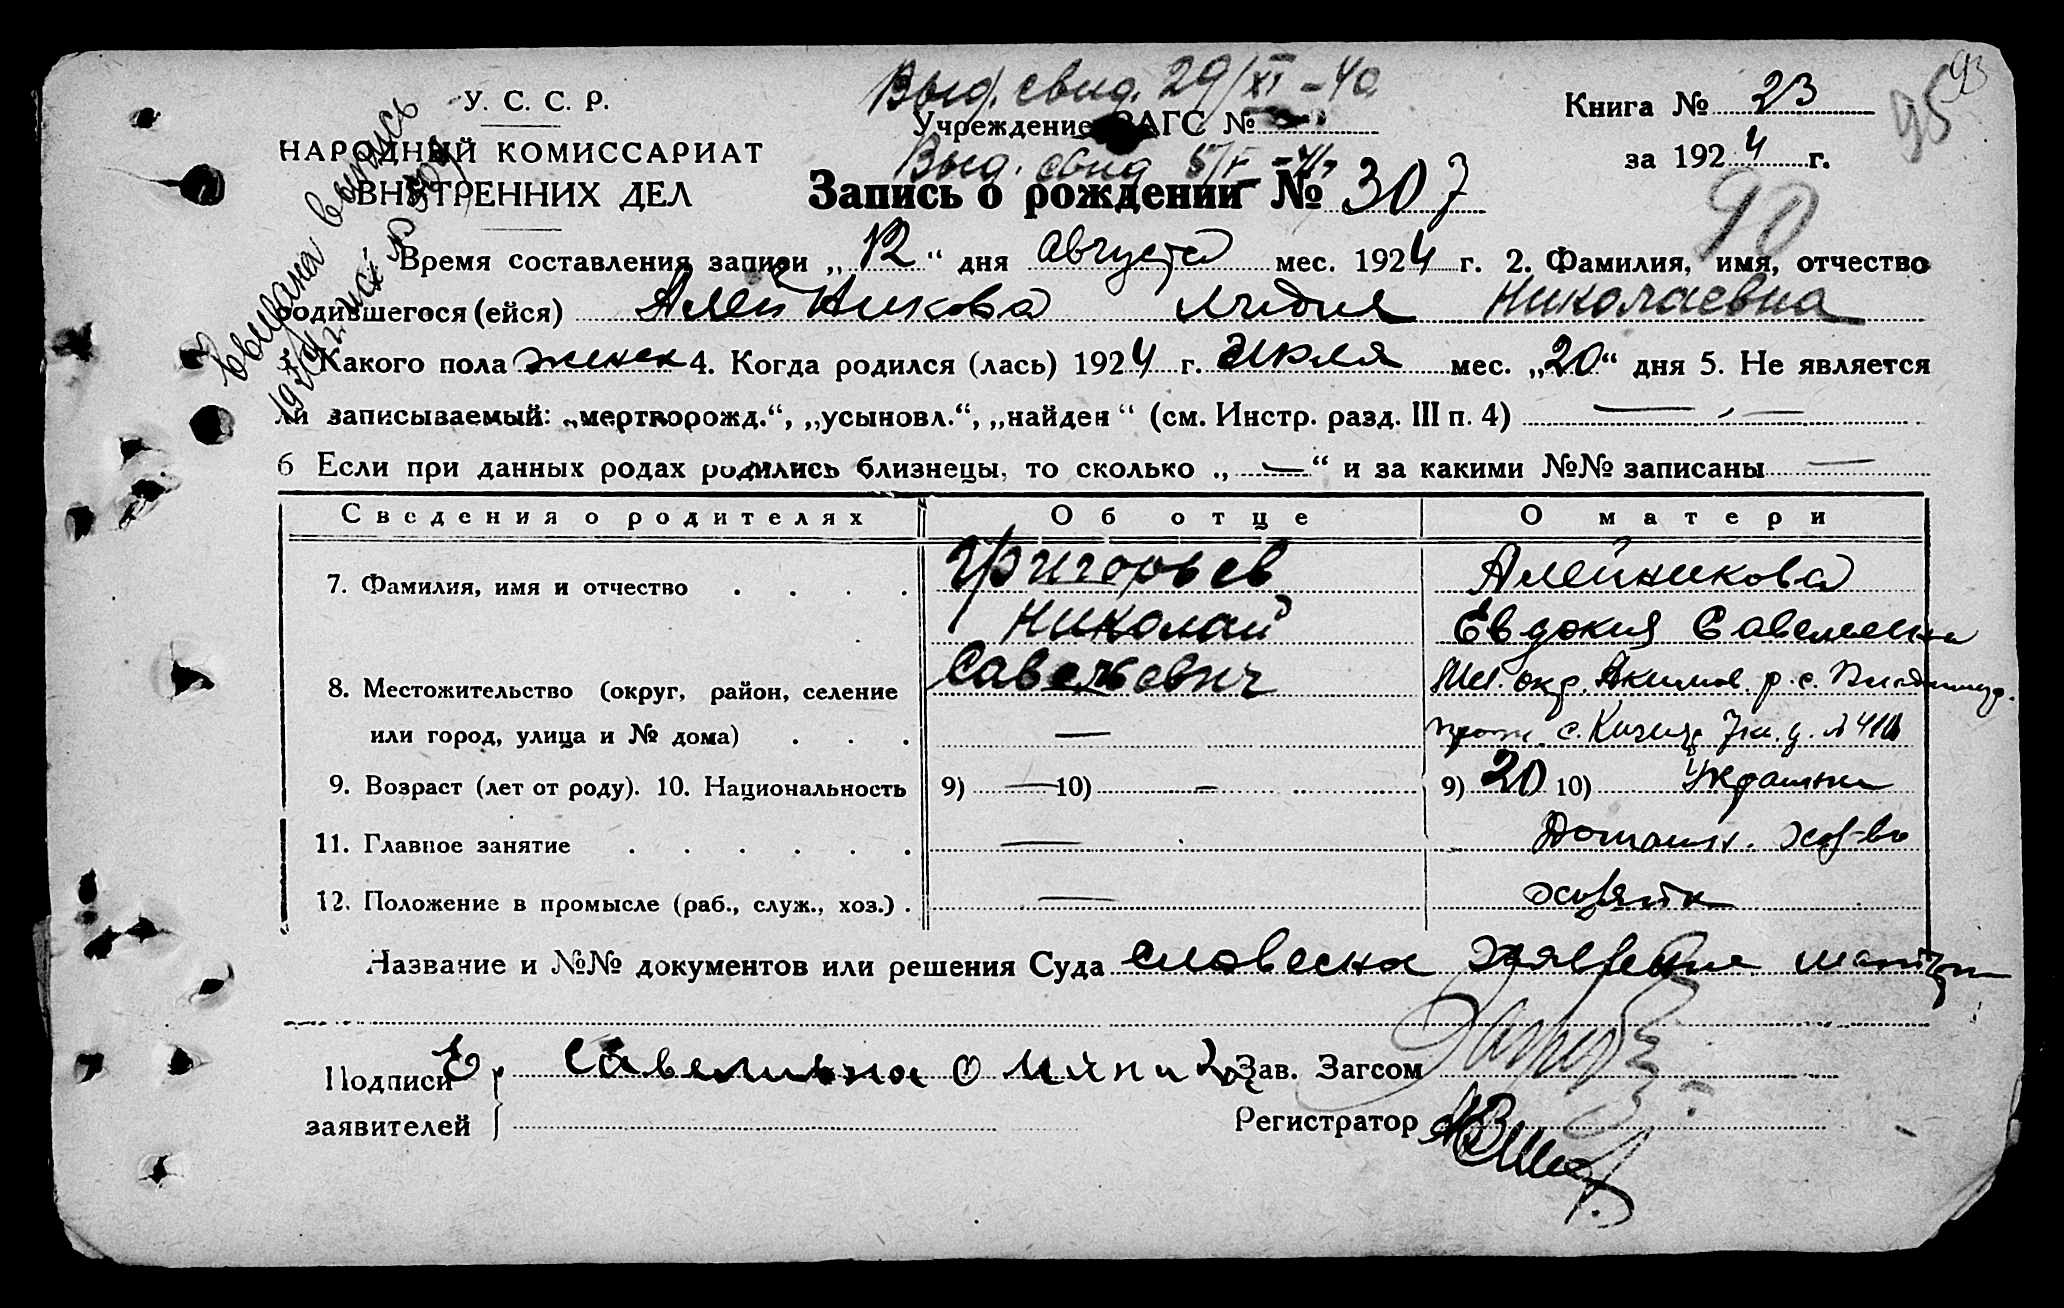 95 93
Выд. свид. 29/XI - 40
У. С. С. Р.
Учреждение ЗАГС №
Книга № 23
НАРОДНЫЙ КОМИССАРИАТ
Выд. свид
за 1924 г.
ВНУТРЕННИХ ДЕЛ
Запись о рождении № 307
90
Выдана выпись
Время составления записи „12“ дня августа мес. 1924 г. 2. Фамилия, имя, отчество
родившегося (ейся) Алейникова Лидия Николаевна
Какого пола женск 4. Когда родился (лась) 1924 г. Июля мес. „20“ дня 5. Не является
ли записываемый: „мертворожд.“, „усыновл.“, „найден“ (см. Инстр. разд. III п. 4) —
6 Если при данных родах родились близнецы, то сколько „—“ и за какими №№ записаны —
Сведения о родителях Об отце О матери
7. Фамилия, имя и отчество . . . . Григорьев Алейникова
Николай Евдокия
8. Местожительство (округ, район, селение Савельевич Мел. окр. Акимов. р. с.
или город, улица и № дома) . . . —
9. Возраст (лет от роду). 10. Национальность 9) — 10) — 9) 20 10) Украинк
11. Главное занятие . . . . . . — Домашн. хоз-во
12. Положение в промысле (раб., служ., хоз.) . — хозяйк
Название и №№ документов или решения Суда словесна заявление матери
Подписи Е. Зав. Загсом
заявителей Регистратор